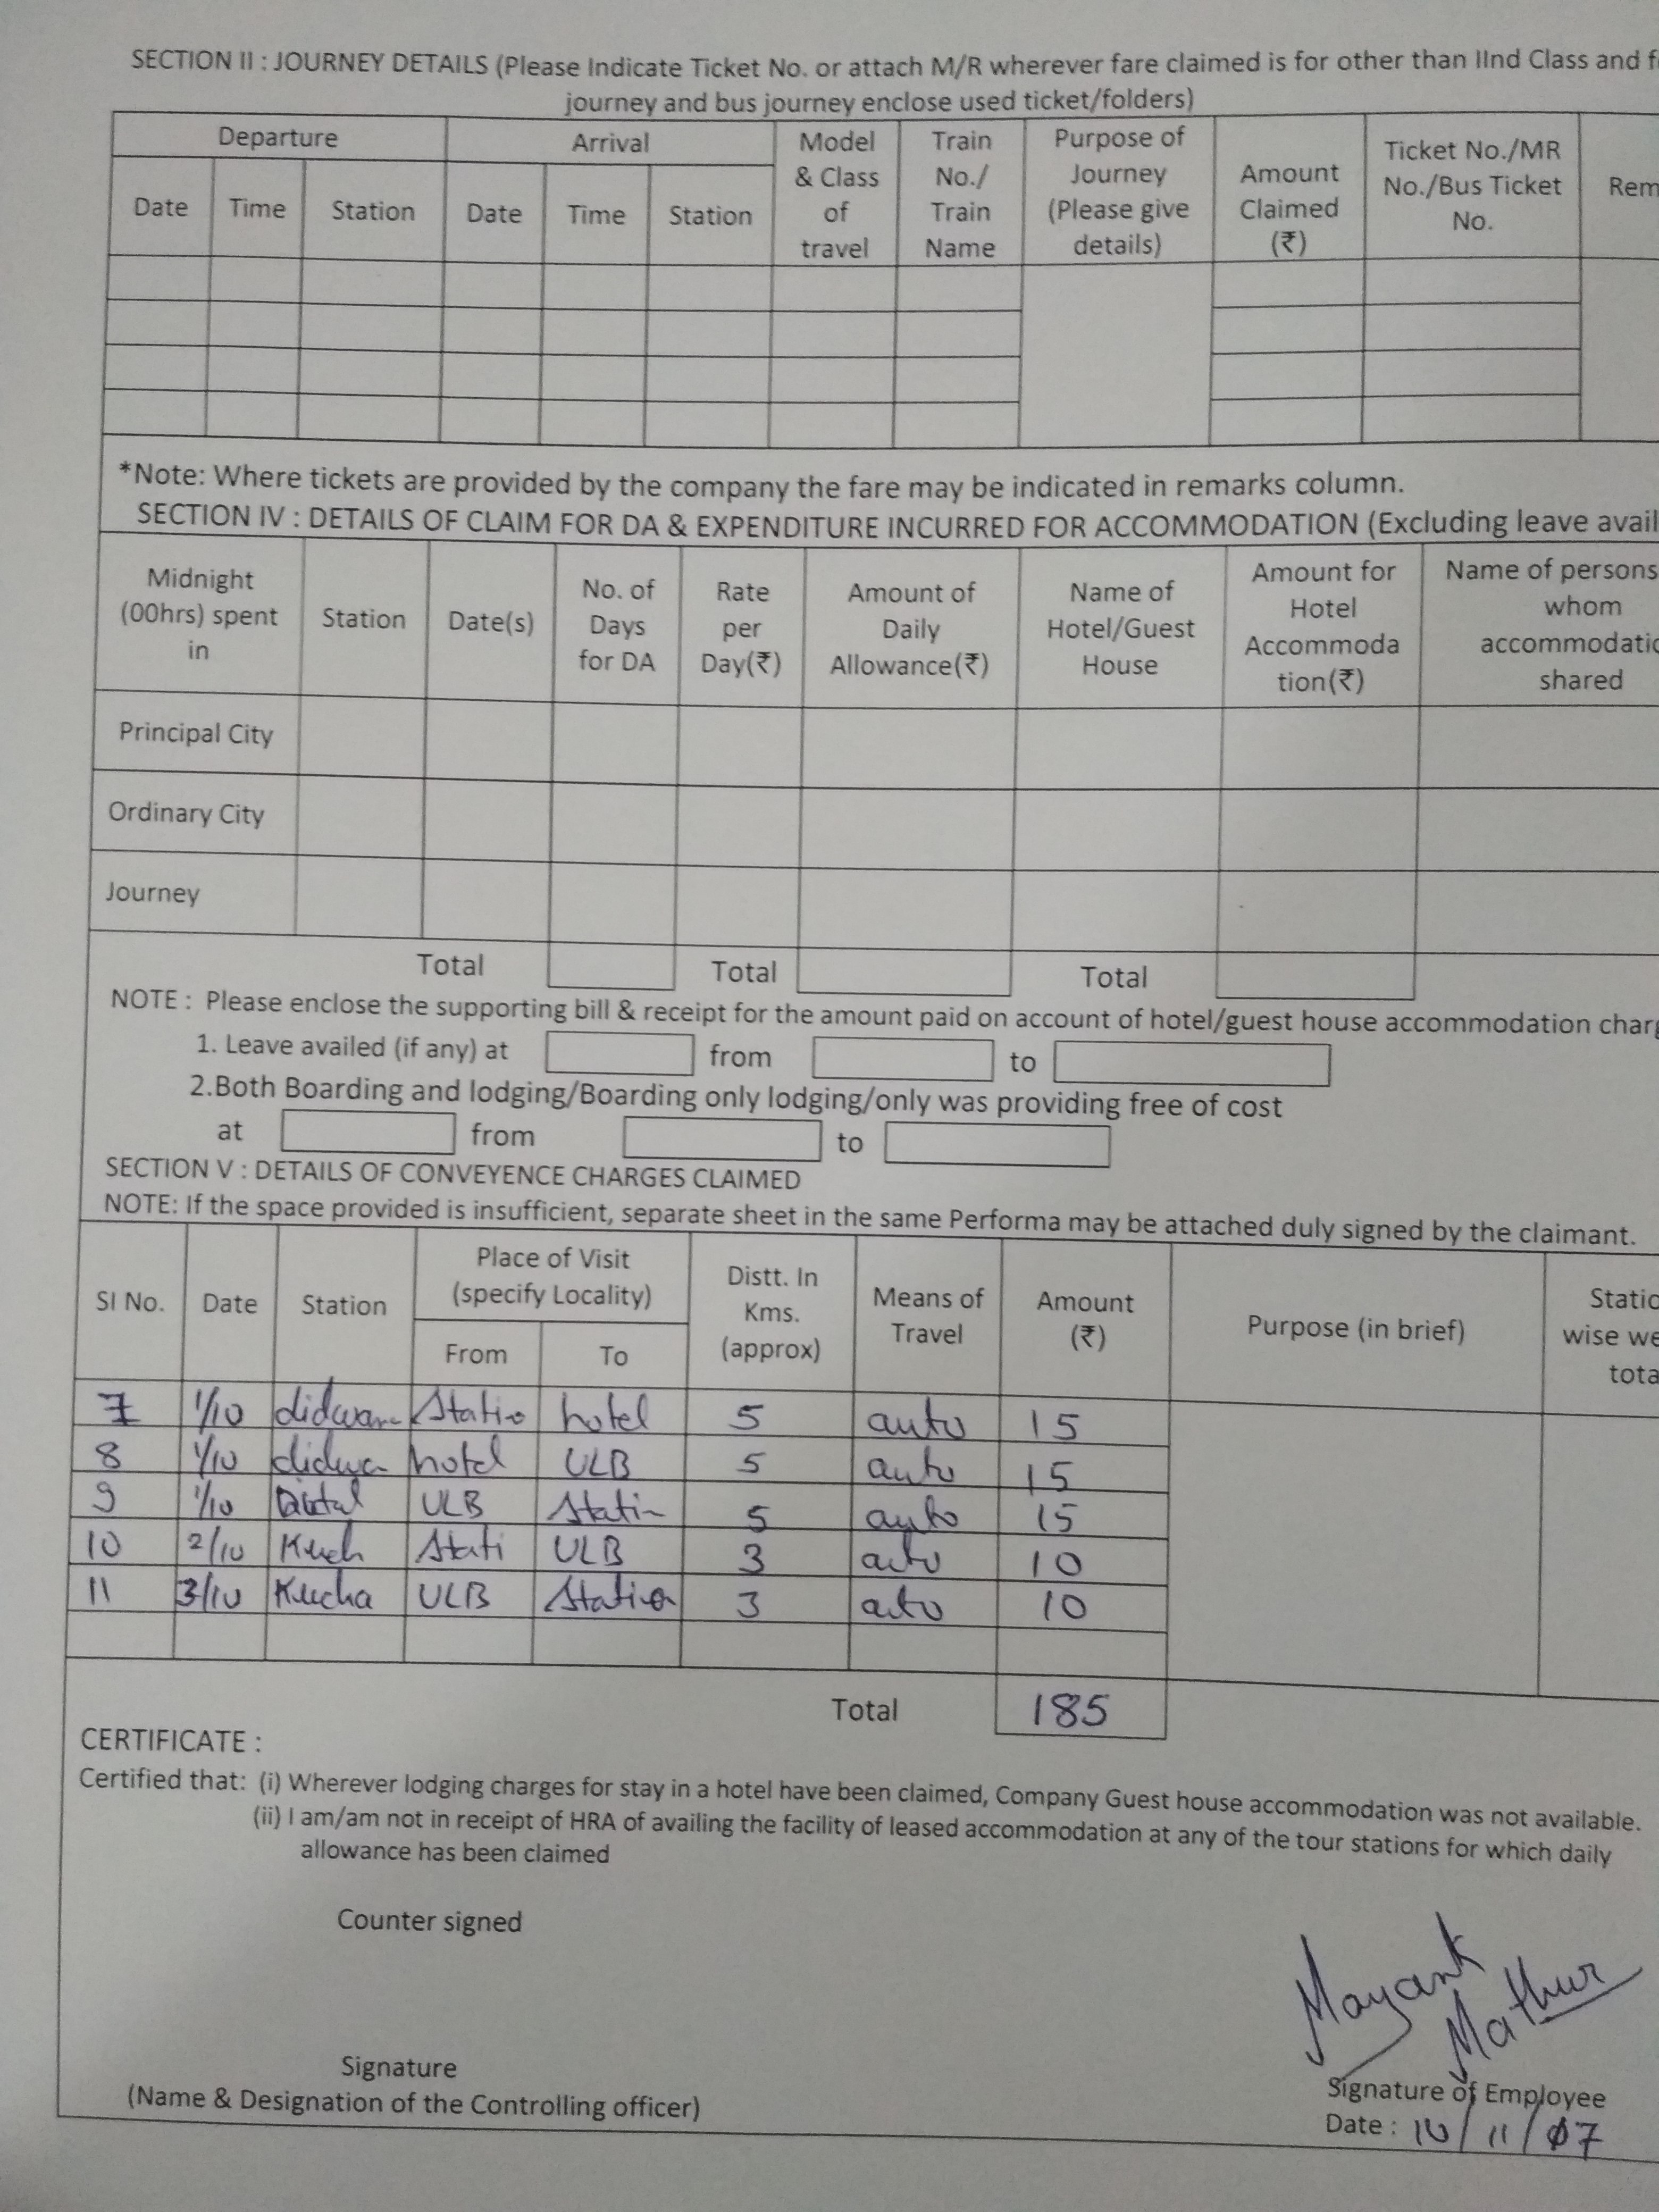 SECTION II : JOURNEY DETAILS (Please Indicate Ticket No. or attach M/R wherever fare claimed is for other than IInd Class and f
journey and bus journey enclose used ticket/folders)
Departure Arrival Model & Class of travel Train No./ Train Name Purpose of Journey (Please give details) Amount Claimed (₹) Ticket No./MR No./Bus Ticket No. Rem
Date Time Station Date Time Station
*Note: Where tickets are provided by the company the fare may be indicated in remarks column.
SECTION IV : DETAILS OF CLAIM FOR DA & EXPENDITURE INCURRED FOR ACCOMMODATION (Excluding leave avail
Midnight (00hrs) spent in Station Date(s) No. of Days for DA Rate per Day(₹) Amount of Daily Allowance(₹) Name of Hotel/Guest House Amount for Hotel Accommoda tion(₹) Name of persons whom accommodatio shared
Principal City
Ordinary City
Journey
Total Total Total
NOTE : Please enclose the supporting bill & receipt for the amount paid on account of hotel/guest house accommodation charg
1. Leave availed (if any) at from to
2.Both Boarding and lodging/Boarding only lodging/only was providing free of cost
at from to
SECTION V : DETAILS OF CONVEYENCE CHARGES CLAIMED
NOTE: If the space provided is insufficient, separate sheet in the same Performa may be attached duly signed by the claimant.
SI No. Date Station Place of Visit (specify Locality) Distt. In Kms. (approx) Means of Travel Amount (₹) Purpose (in brief) Static wise we tota
From To
7 1/10 didwana Statio hotel 5 auto 15
8 1/10 didwa hotel ULB 5 auto 15
9 1/10 ULB Statin 5 auto 15
10 2/10 Kuch Stati ULB 3 auto 10
11 3/10 Kucha ULB Station 3 auto 10
Total 185
CERTIFICATE :
Certified that: (i) Wherever lodging charges for stay in a hotel have been claimed, Company Guest house accommodation was not available.
(ii) I am/am not in receipt of HRA of availing the facility of leased accommodation at any of the tour stations for which daily
allowance has been claimed
Counter signed
Mayank Mathur
Signature
(Name & Designation of the Controlling officer)
Signature of Employee
Date : 10/11/07